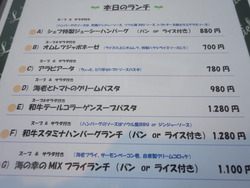 本日のランチ
スープ & サラダ付き
A) シェフ特製ジューシーハンバーグ (パン or ライス付き) 880円
スープ & サラダ付き
B) オムレツジャポネーゼ 700円
スープ & サラダ付き
C) アラビアータ 780円
スープ & サラダ付き
D) 海老とトマトのクリームパスタ 980円
スープ & サラダ付き
E) 和牛テールコラーゲンスープパスタ 1.280円
スープ & サラダ付き
F) 和牛スタミナハンバーグランチ (パン or ライス付き) 1.280円
スープ & サラダ付き
G) 海の幸のMIXフライランチ (パン or ライス付き) 1.100